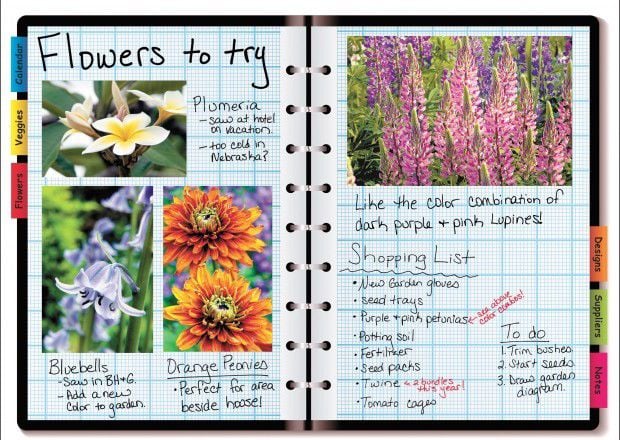 Flowers to try
Calendar
Veggies
Flowers
Plumeria
- saw at hotel
on vacation.
- too cold in
Nebraska?
Bluebells
- Saw in BH+G.
- Add a new
color to garden.
Orange Peonies
• Perfect for area
beside house!
Like the color combination of
dark purple + pink Lupines!
Shopping List
• New Garden gloves
• Seed trays
• Purple + pink petunias ← see above
color combos!
• Potting soil
• Fertilizer
• Seed packs
• Twine ← 2 bundles
this year!
• Tomato cages
To do
1. Trim bushes
2. Start seeds
3. Draw garden
diagram.
Designs
Suppliers
Notes